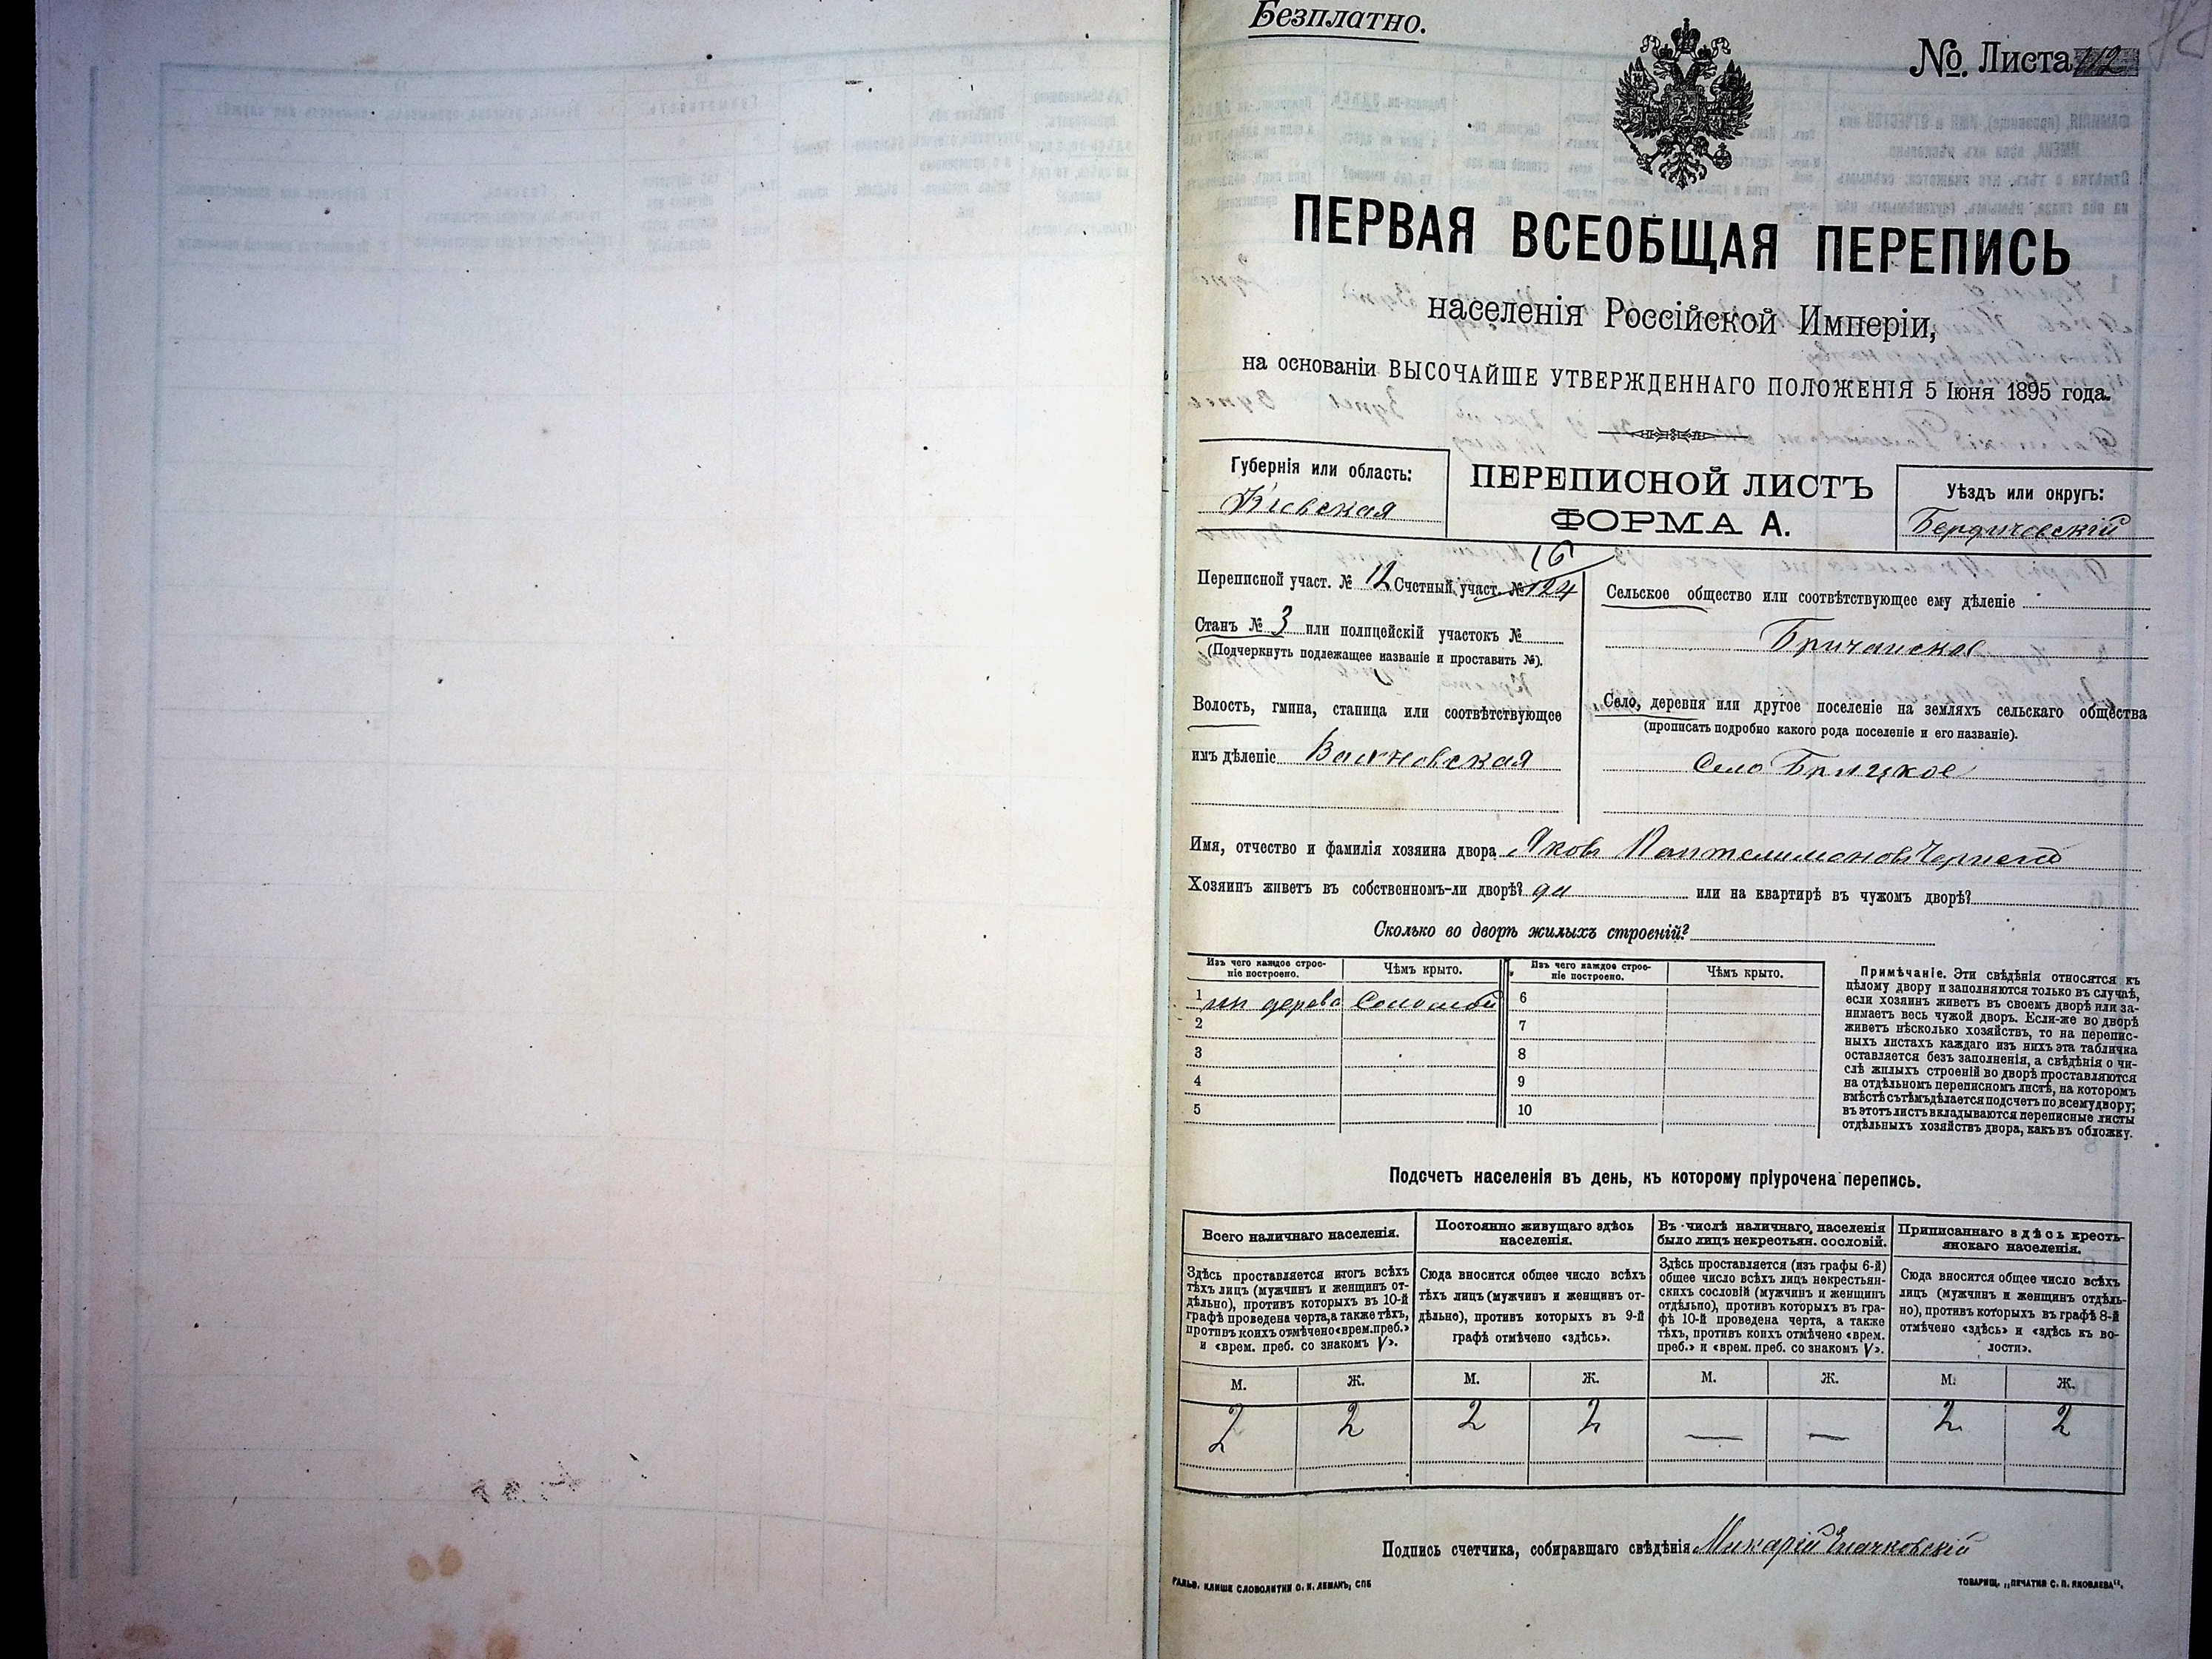 Безплатно.
№. Листа 112
ПЕРВАЯ ВСЕОБЩАЯ ПЕРЕПИСЬ
населенія Россійской Имперіи,
на основаніи ВЫСОЧАЙШЕ УТВЕРЖДЕННАГО ПОЛОЖЕНІЯ 5 Іюня 1895 года.
Губернія или область:
Кіевская
ПЕРЕПИСНОЙ ЛИСТЪ
ФОРМА А.
Уѣздъ или округъ:
Бердичевскій
16
Переписной участ. № 12 Счетный участ. № 124
Станъ № 3 или полицейскій участокъ №
(Подчеркнуть подлежащее названіе и проставить №).
Волость, гмина, станица или соотвѣтствующее
имъ дѣленіе Вахновская
Сельское общество или соотвѣтствующее ему дѣленіе
Село, деревня или другое поселеніе на земляхъ сельскаго общества
(прописать подробно какого рода поселеніе и его названіе).
Село Брицкое
Имя, отчество и фамилія хозяина двора Яковъ Пантелимоновъ
Хозяинъ живетъ въ собственномъ-ли дворѣ? да или на квартирѣ въ чужомъ дворѣ?
Сколько во дворѣ жилыхъ строеній?
Изъ чего каждое строе-
ніе построено.
Чѣмъ крыто.
Изъ чего каждое строе-
ніе построено.
Чѣмъ крыто.
1 дерева Соломой 6
2 7
3 8
4 9
5 10
Примѣчаніе. Эти свѣдѣнія относятся къ
цѣлому двору и заполняются только въ случаѣ,
если хозяинъ живетъ въ своемъ дворѣ или за-
нимаетъ весь чужой дворъ. Если-же во дворѣ
живетъ нѣсколько хозяйствъ, то на перепис-
ныхъ листахъ каждаго изъ нихъ эта табличка
оставляется безъ заполненія, а свѣдѣнія о чи-
слѣ жилыхъ строеній во дворѣ проставляются
на отдѣльномъ переписномъ листѣ, на которомъ
вмѣстѣ съ тѣмъ дѣлается подсчетъ по всему двору;
въ этотъ листъ вкладываются переписные листы
отдѣльныхъ хозяйствъ двора, какъ въ обложку.
Подсчетъ населенія въ день, къ которому пріурочена перепись.
Всего наличнаго населенія.
Здѣсь проставляется итогъ всѣхъ
тѣхъ лицъ (мужчинъ и женщинъ от-
дѣльно), противъ которыхъ въ 10-й
графѣ проведена черта, а также тѣхъ,
противъ коихъ отмѣчено «врем. преб.»
и «врем. преб. со знакомъ V».
Постоянно живущаго здѣсь
населенія.
Сюда вносится общее число всѣхъ
тѣхъ лицъ (мужчинъ и женщинъ от-
дѣльно), противъ которыхъ въ 9-й
графѣ отмѣчено «здѣсь».
Въ числѣ наличнаго населенія
было лицъ некрестьян. сословій.
Здѣсь проставляется (изъ графы 6-й)
общее число всѣхъ лицъ некрестьян-
скихъ сословій (мужчинъ и женщинъ
отдѣльно), противъ которыхъ въ гра-
фѣ 10-й проведена черта, а также
тѣхъ, противъ коихъ отмѣчено «врем.
преб.» и «врем. преб. со знакомъ V».
Приписаннаго здѣсь кресть-
янскаго населенія.
Сюда вносится общее число всѣхъ
лицъ (мужчинъ и женщинъ отдѣль-
но), противъ которыхъ въ графѣ 8-й
отмѣчено «здѣсь» и «здѣсь къ во-
лости».
М. Ж. М. Ж. М. Ж. М. Ж.
2 2 2 2 — — 2 2
Подпись счетчика, собиравшаго свѣдѣнія Макарій
КЛИШЕ СЛОВОЛИТНИ О. И. ЛЕМАНЪ, СПБ
ТОВАРИЩ. „ПЕЧАТНЯ С. П. ЯКОВЛЕВА“.